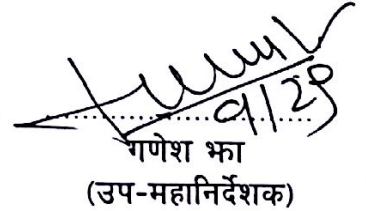 ९/२९
गणेश झा
(उप-महानिर्देशक)